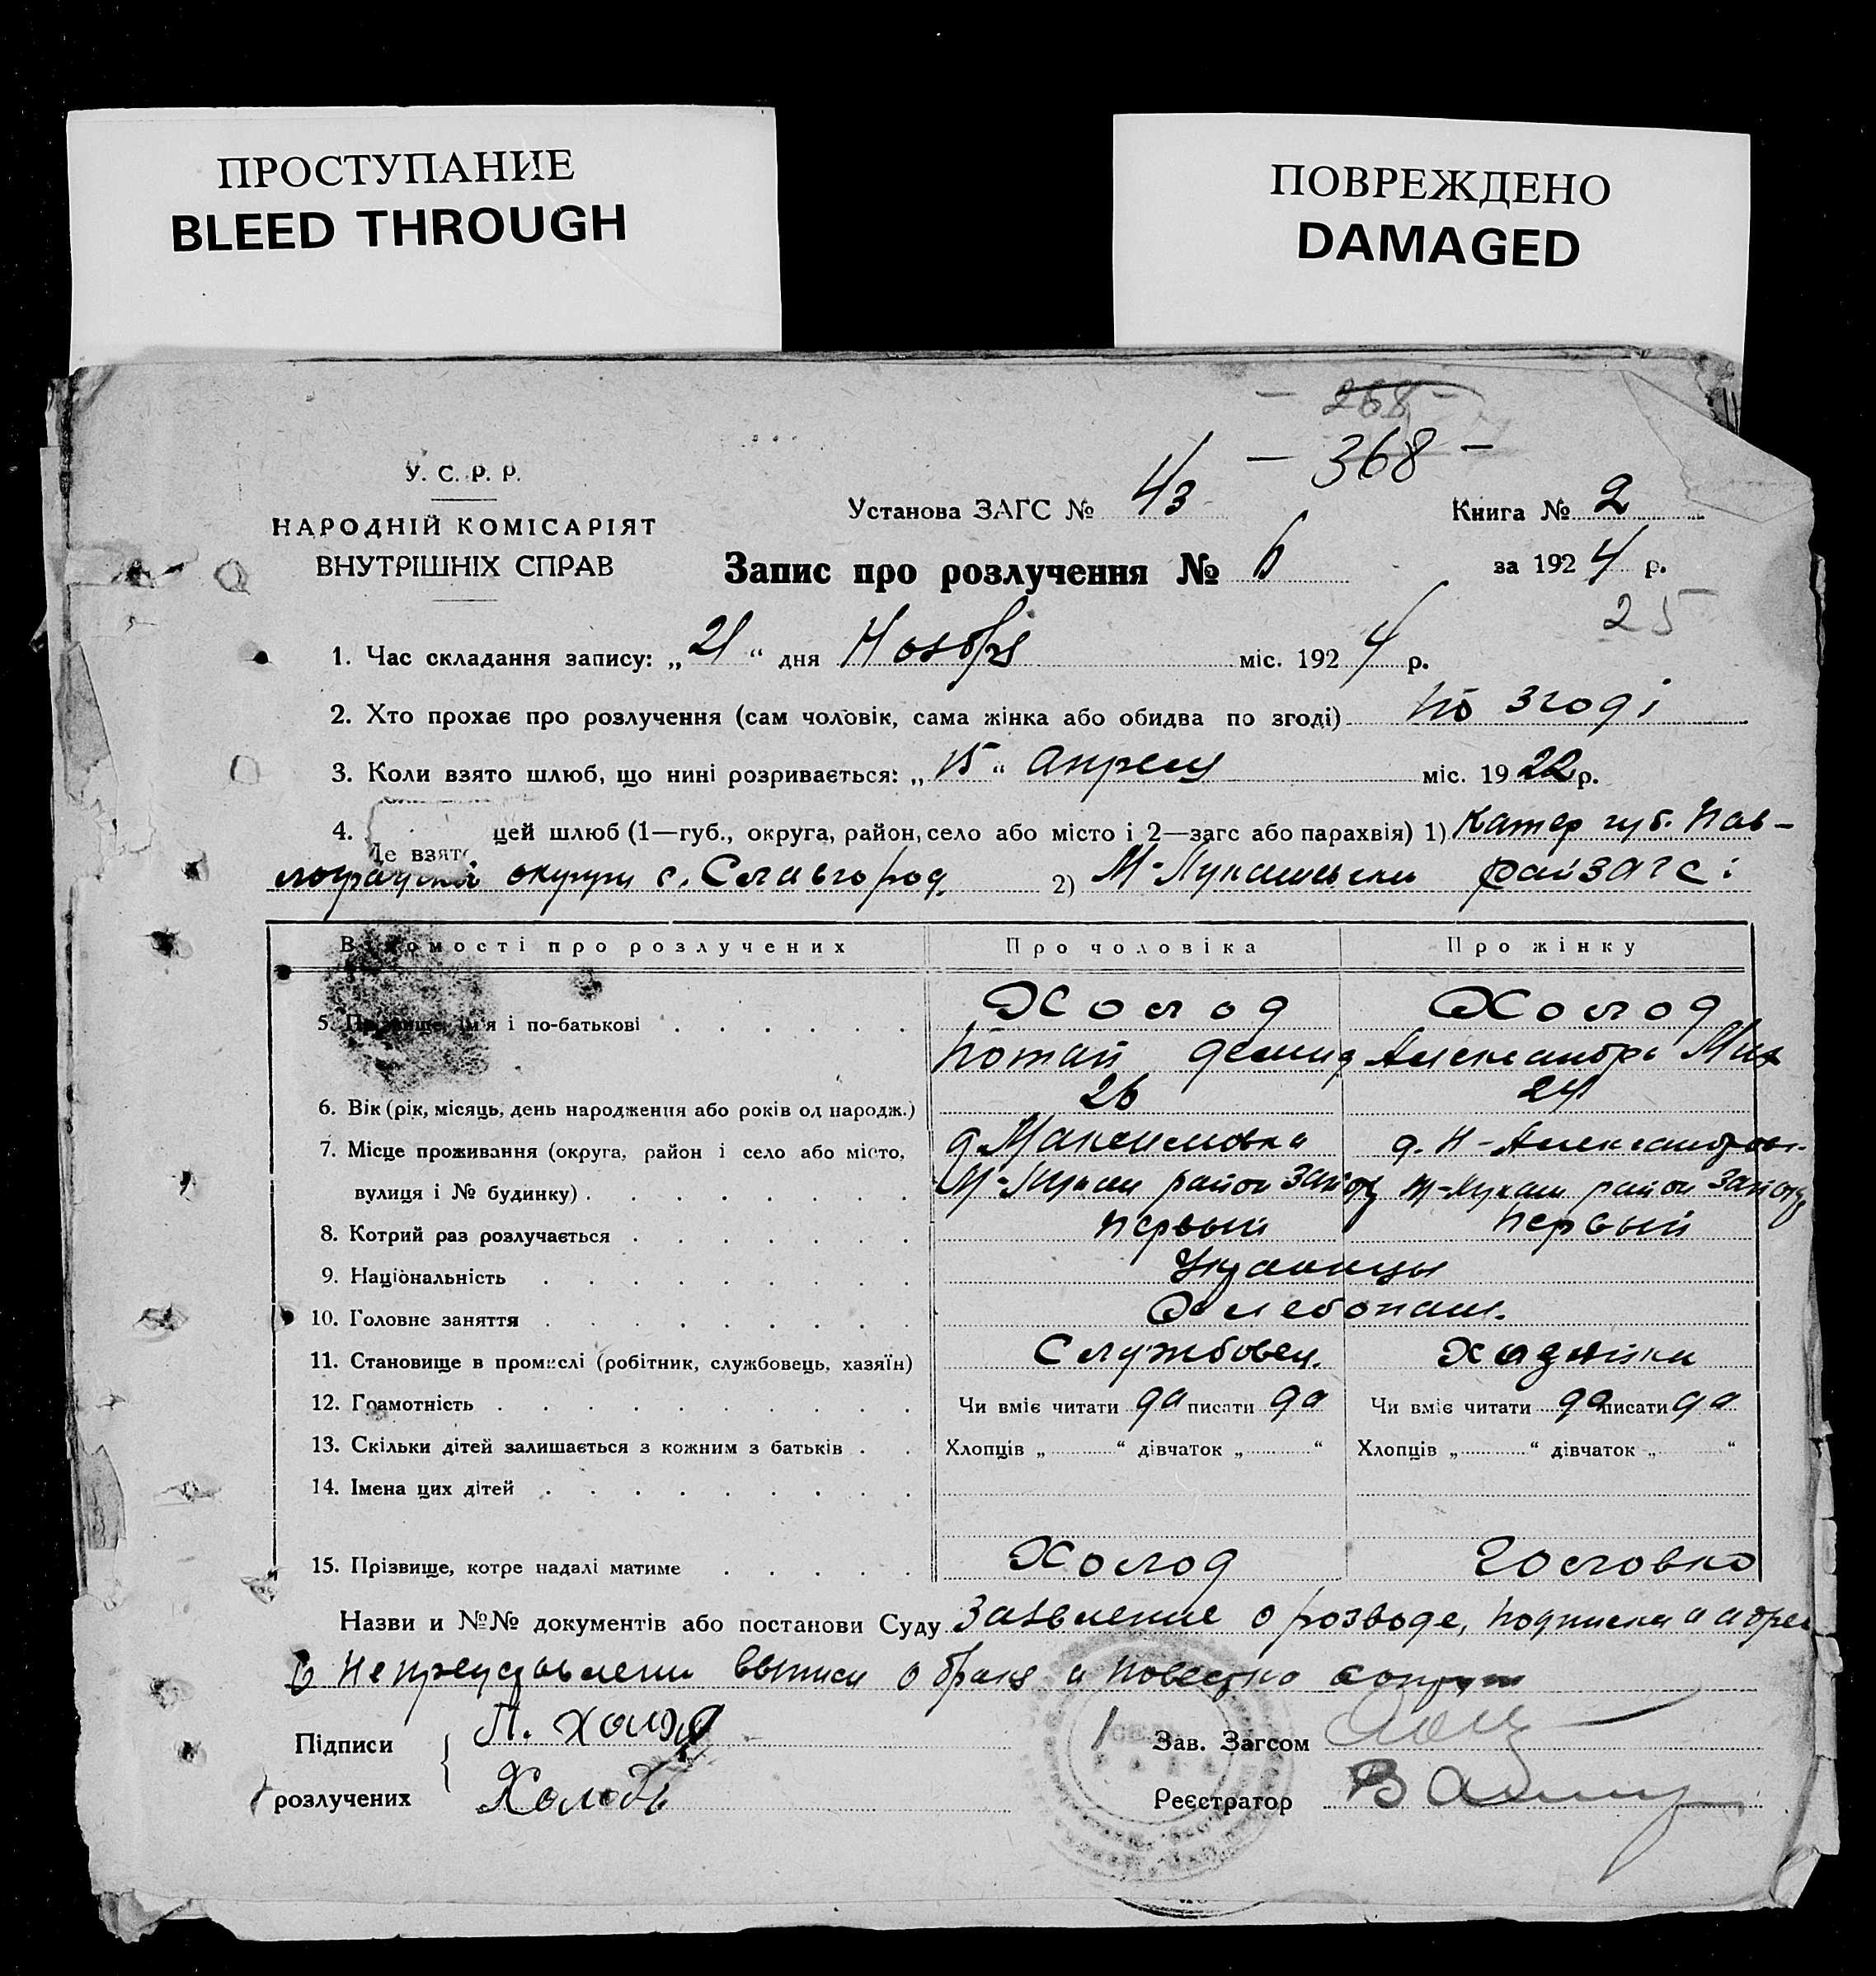 ПРОСТУПАНИЕ
BLEED THROUGH
ПОВРЕЖДЕНО
DAMAGED
268
— 368 —
У. С. Р. Р.
НАРОДНІЙ КОМІСАРІЯТ
ВНУТРІШНІХ СПРАВ
Установа ЗАГС № 43
Книга № 2
Запис про розлучення № 6
за 1924 р.
25
1. Час складання запису: „21“ дня Ноября міс. 1924 р.
2. Хто прохає про розлучення (сам чоловік, сама жінка або обидва по згоді) по згоді
3. Коли взято шлюб, що нині розривається: „15“ апреля міс. 1922 р.
4. Де взято цей шлюб (1—губ., округа, район, село або місто і 2—загс або парахвія) 1) Катер губ. Пав-
лоградской округи с. Славгород 2) М-Лукашевски райзагс:
Відомості про розлучених Про чоловіка Про жінку
5. Прізвище, ім'я і по-батькові Холод Холод
Потап Демид Александра Мих
6. Вік (рік, місяць, день народження або років од народж.) 26 24
7. Місце проживання (округа, район і село або місто, д. Максимовка д. Н-Александров.
вулиця і № будинку) М-Лукаш район М-Лукаш район
8. Котрий раз розлучається первый первый
9. Національність Украинцы
10. Головне заняття Хлебопаш.
11. Становище в промислі (робітник, службовець, хазяїн) Службовец.
12. Грамотність Чи вміє читати да писати да Чи вміє читати да писати да
13. Скільки дітей залишається з кожним з батьків Хлопців „ “ дівчаток „ “ Хлопців „ “ дівчаток „ “
14. Імена цих дітей
15. Прізвище, котре надалі матиме Холод Головко
Назви и №№ документів або постанови Суду Заявление о розводе, подписка
о непредставлении выписи о браке и повестка
Підписи П. Холод
розлучених Холодъ
Зав. Загсом
Реєстратор